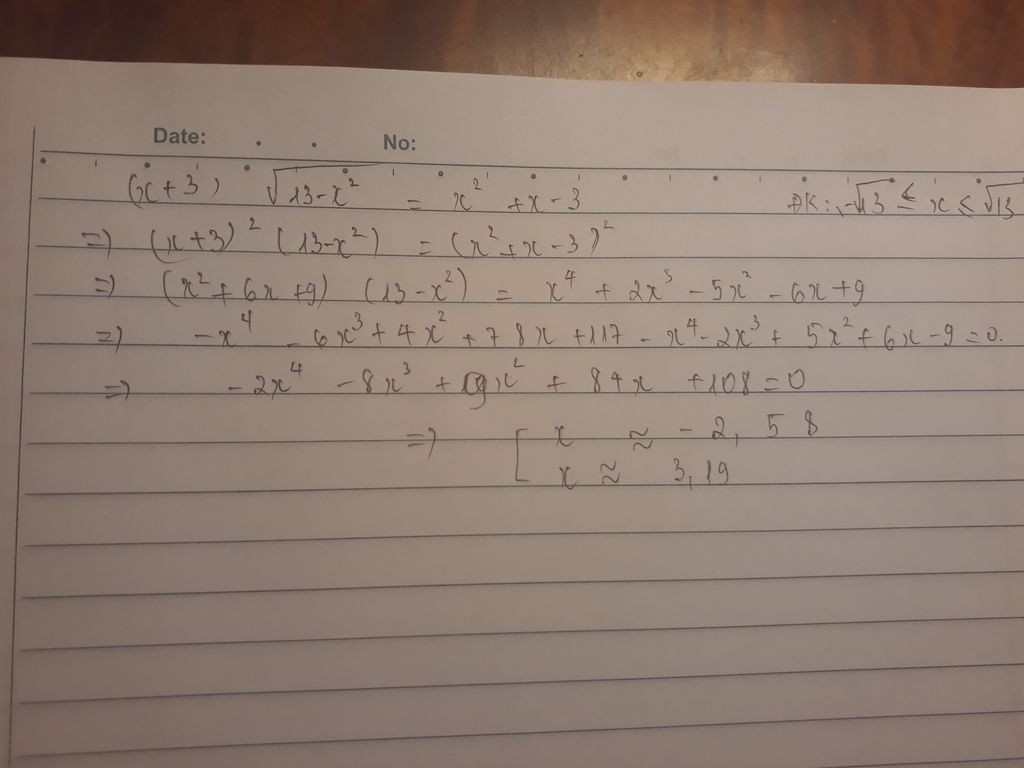 Date: No:
(x+3) √(13-x²) = x² + x - 3 ĐK: -√13 ≤ x ≤ √13
=> (x+3)² (13-x²) = (x²+x-3)²
=> (x² + 6x + 9) (13-x²) = x⁴ + 2x³ - 5x² - 6x + 9
=> -x⁴ - 6x³ + 4x² + 78x + 117 - x⁴ - 2x³ + 5x² + 6x - 9 = 0.
=> -2x⁴ - 8x³ + 9x² + 84x + 108 = 0
=> [ x ≈ -2,58
x ≈ 3,19